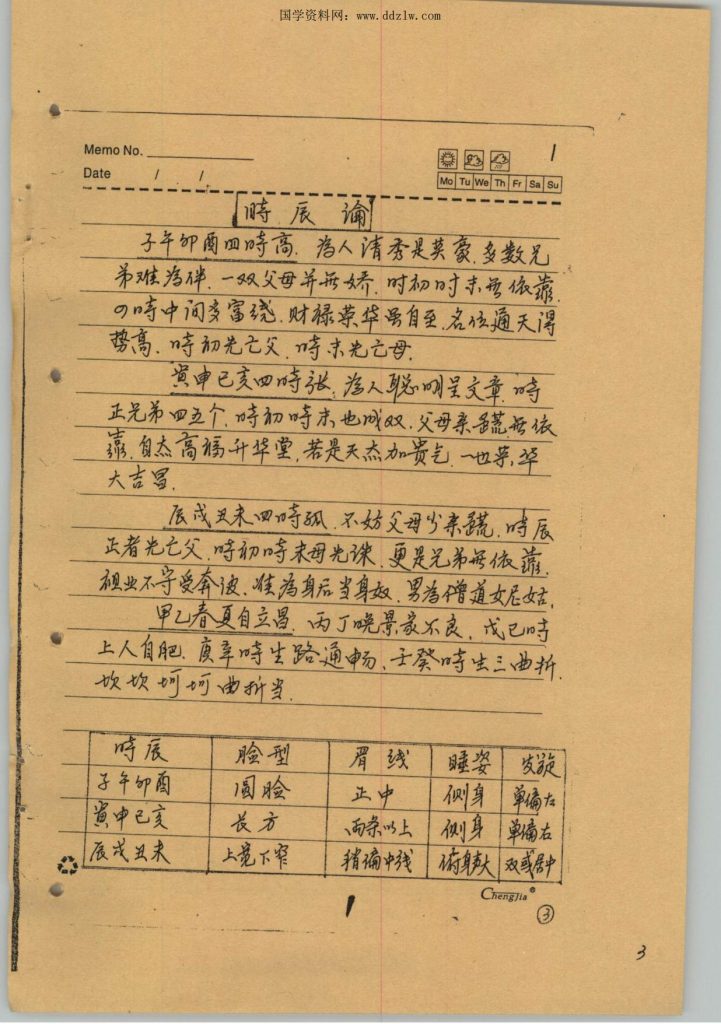 国学资料网：www.ddzlw.com
Memo No.
1
Date / /
Mo Tu We Th Fr Sa Su
時辰論
子午卯酉四時高．為人清秀是英豪．多数兄
弟难為伴．一双父母并無娇．时初时末無依靠．
の時中间多富饶．财禄荣华虽自至．名位通天得
势高．時初先亡父．時末先亡母．
寅申已亥四時張．為人聪明呈文章．時
正兄弟四五个．時初時末也成双．父母亲疏無依
靠．自杰高福升华堂．若是天杰加贵气．一世荣华
大吉昌．
辰戌丑未四時孤．不妨父母少亲疏．時辰
正者先亡父．時初時末母先诛．更是兄弟無依靠．
祖业不守受奔波．难為身后当身奴．男為僧道女尼姑．
甲乙春夏自立昌．丙丁晚景家不良．戊已時
上人自肥．庚辛時生路通畅．壬癸時生三曲折．
坎坎坷坷曲折当．
時辰 脸型 眉线 睡姿 发旋
子午卯酉 圆脸 正中 侧身 单偏左
寅申已亥 长方 两条以上 侧身 单偏右
辰戌丑未 上宽下窄 稍偏中线 俯身 双或居中
ChengJia®
1
③
3